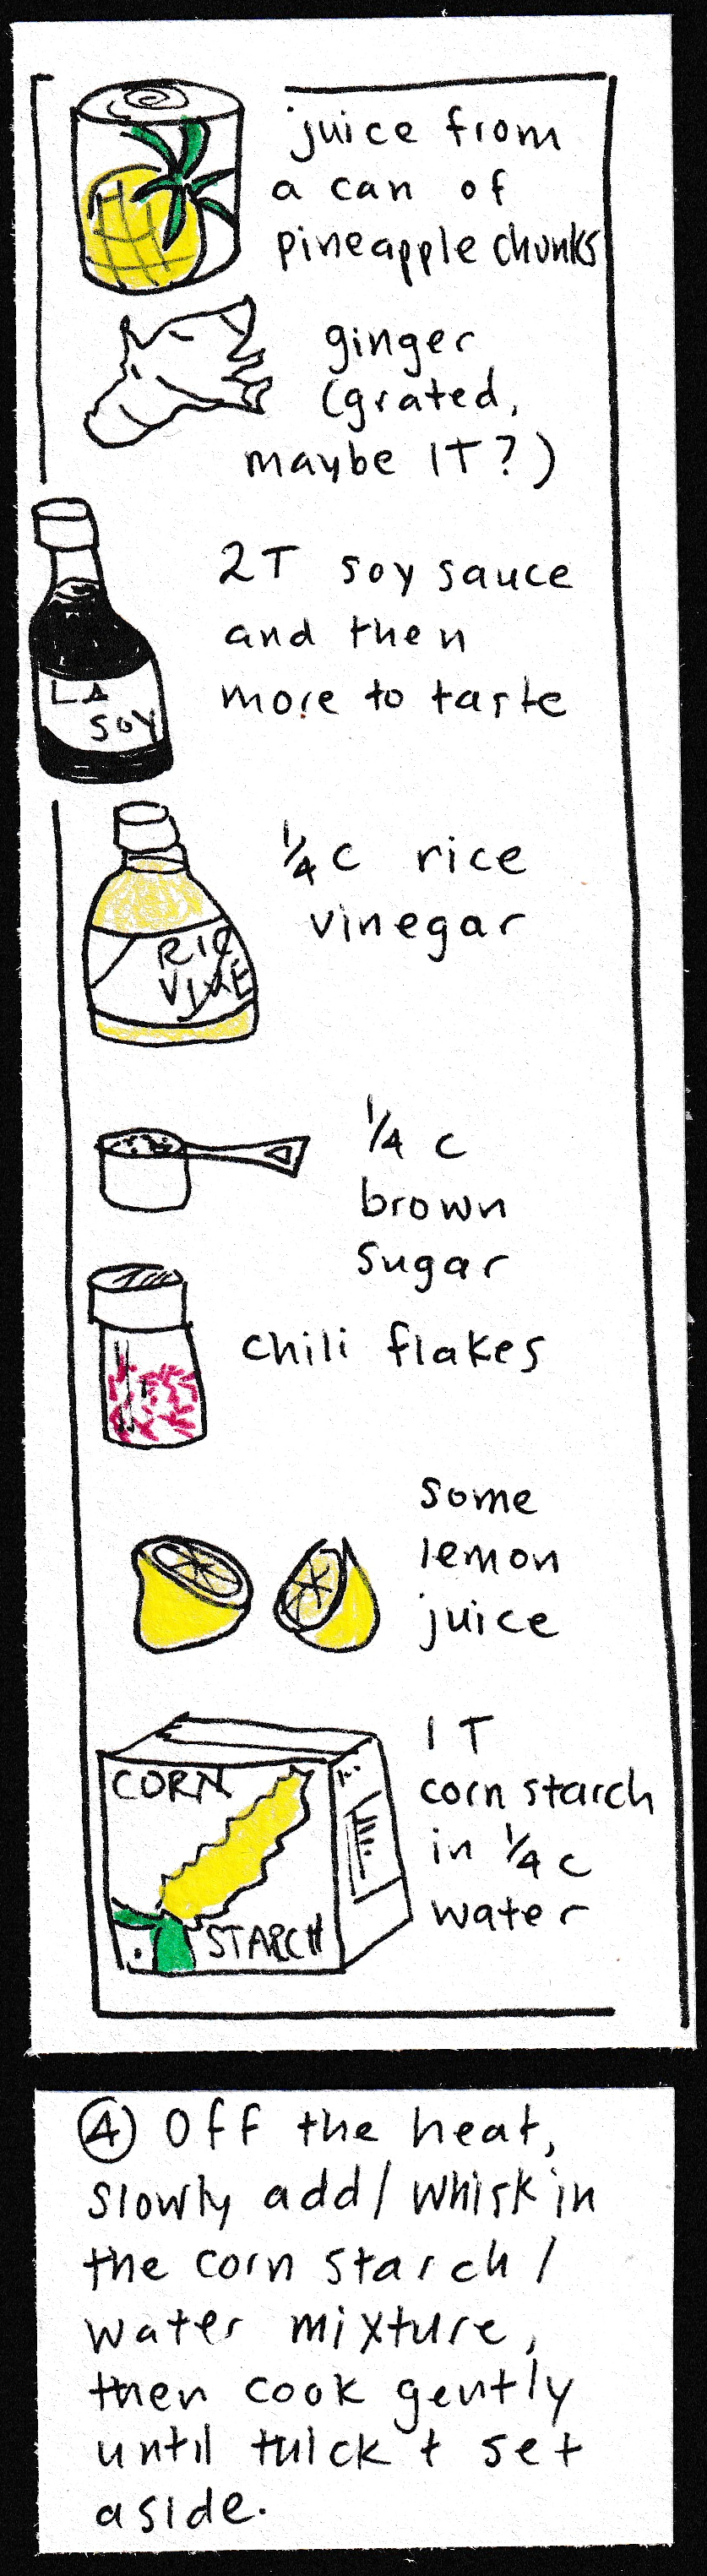 juice from
a can of
pineapple chunks
ginger
(grated,
maybe 1T?)
2T soy sauce
and then
more to taste
LA
SOY
1/4 c rice
vinegar
RIC
VINE
1/4 c
brown
sugar
chili flakes
some
lemon
juice
1 T
corn starch
in 1/4 c
water
CORN
STARCH
④ Off the heat,
slowly add/whisk in
the corn starch/
water mixture,
then cook gently
until thick + set
aside.